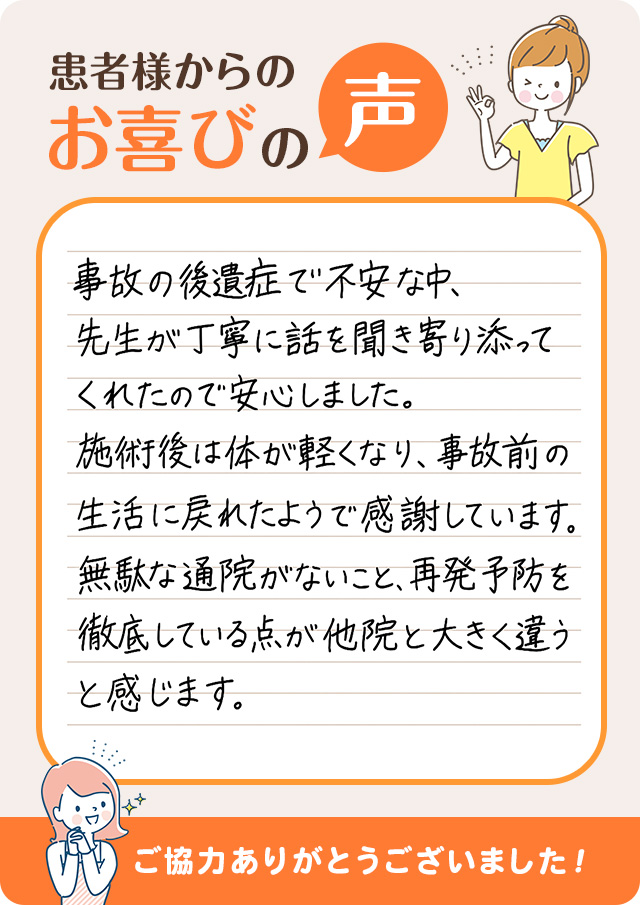 患者様からの
お喜びの声
事故の後遺症で不安な中、
先生が丁寧に話を聞き寄り添って
くれたので安心しました。
施術後は体が軽くなり、事故前の
生活に戻れたようで感謝しています。
無駄な通院がないこと、再発予防を
徹底している点が他院と大きく違う
と感じます。
ご協力ありがとうございました!